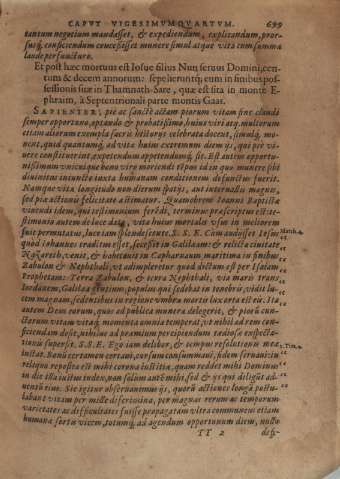 CAPVT VIGESIMVMQVARTVM. 699
tantum negotium mandasset, & expediendum, explicandum, pror-
susq; conficiendum concessisset munere simul atque vita cum summa
laude perfunctum.
Et post hæc mortuus est Iosue filius Nun seruus Domini, cen-
tum & decem annorum: sepelieruntq; eum in finibus pos-
sessionis suæ in Thamnath-Sare, quæ est sita in monte E-
phraim, à Septentrionali parte montis Gaas.
SAPIENTER, piè ac sanctè actam piorum vitam fine claudi
semper opportuno, optando & probatissimo, huius viri atq; multorum
etiam aliorum exempla sacris historijs celebrata docent, simulq; mo-
nent, quid quantumq; ad vitæ huius extremum diem ijs, qui piè vi-
uere constituerint, expetendum appetendumq; sit. Est autem opportu-
nissimum vnicuique bono viro moriendi tempus id in quo munere sibi
diuinitus iniuncto iuxta humanam conditionem defunctus fuerit.
Namque vita longitudo non dierum spatijs, aut interuallis magnis,
sed piæ actionis felicitate æstimatur. Quamobrem Ioanni Baptistæ
viuendi idem, qui testimonium ferēdi, terminus præscriptus est: te-
stimonio autem de luce dato, vita huius mortalis usus in meliorem
fuit permutatus, luce iam splendescente. S. S. E. Cum audisset Iesus
quòd Iohannes traditus esset, secessit in Galilæam: & relicta ciuitate
Nazareth, venit, & habitauit in Capharnaum maritima in finibus
Zabulon & Nephthali, vt adimpleretur quod dictum est per Isaiam
Prophetam: Terra Zabulon, & terra Nephthali, via maris trans
Iordanem, Galilæa gentium, populus qui sedebat in tenebris, vidit lu-
cem magnam, sedentibus in regione vmbræ mortis lux orta est eis. Ita
autem Deus eorum, quos ad publica munera delegerit, & piorū cun-
ctorum vitam vitæq; momenta omnia temperat, vt nihil ad rem con-
ficiendam desit, nihil
S. S. E. Ego iam delibor, & tempus resolutionis meæ
instat. Bonū certamen certaui, cursum consummaui, fidem seruaui: in
reliquo reposita est mihi corona iustitiæ, quam reddet mihi Dominus
in die illa iustus iudex, non solùm autē mihi, sed & ijs qui diligūt ad-
uentū eius.
labant vitam per
varietates ac difficultates fuisse propagatam vltra communem etiam
humanæ sortis vicem, totumq; ad agendum opportunum diem, nullo
TT 2 desi-
Matth. 4
2. Tim. 4